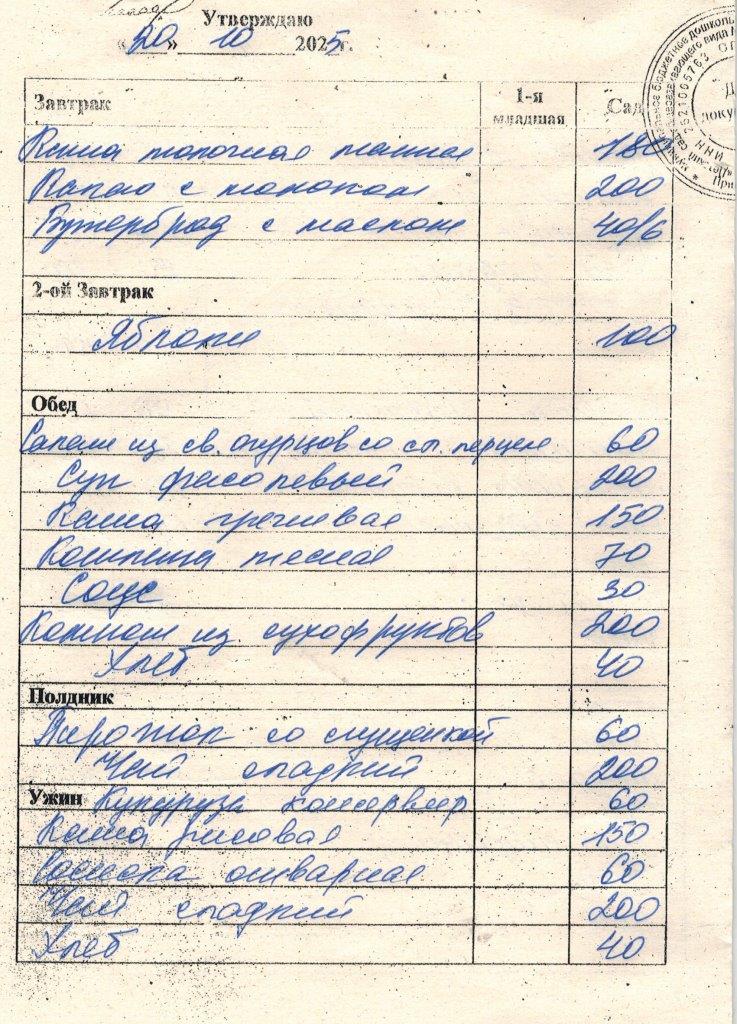 Утверждаю
«20» 10 2025г.
Завтрак 1-я младшая Сад
Каша молочная манная 180
Какао с молоком 200
Бутерброд с маслом 40/6
2-ой Завтрак
Яблоки 100
Обед
Салат из св. огурцов со сл. перцем 60
Суп фасолевый 200
Каша гречневая 150
Котлета мясная 70
Соус 30
Компот из сухофруктов 200
Хлеб 40
Полдник
Пирожок со сгущенкой 60
Чай сладкий 200
Ужин Кукуруза консервир 60
Каша рисовая 150
отварная 60
Чай сладкий 200
Хлеб 40